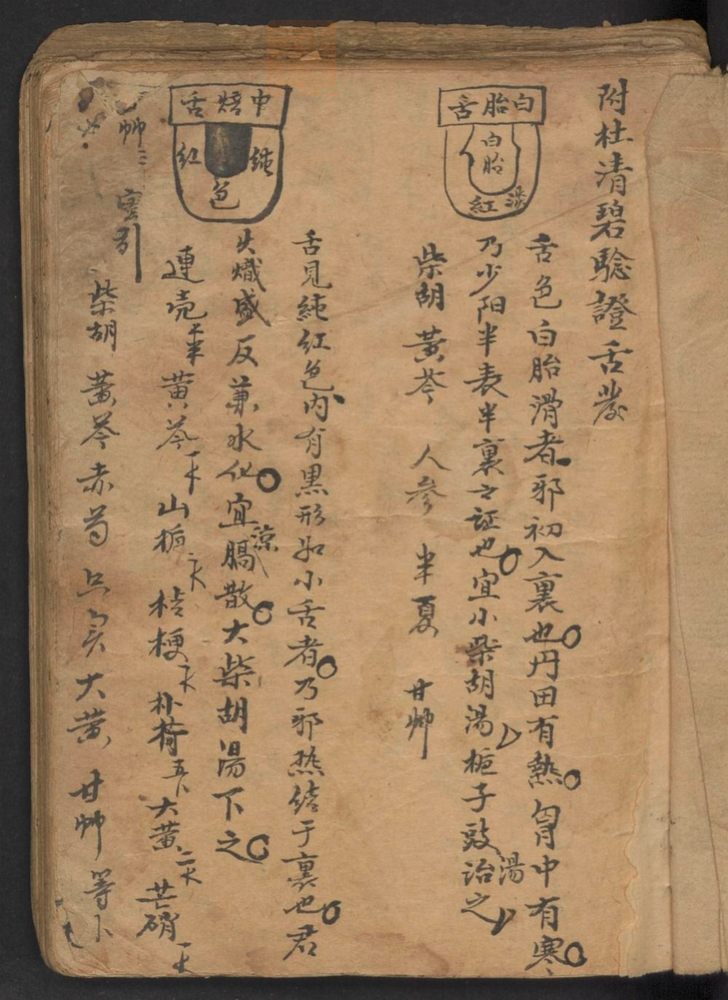 附杜清碧驗證舌法
白胎舌
白胎
淡紅
舌色白胎滑者邪初入裏也丹田有熱胷中有寒
乃少阳半表半裏之証也宜小柴胡湯梔子豉湯治之
柴胡 黃芩 人參 半夏 甘艸
中焙舌
純紅色
舌見純紅色内有黒形如小舌者乃邪热结于裏也君
火熾盛反兼水化宜凉膈散大柴胡湯下之
連壳 黄芩 山栀 桔梗 朴荷 大黄 芒硝
甘艸
柴胡 黃芩 赤芍 只壳 大黄 甘艸 等卜